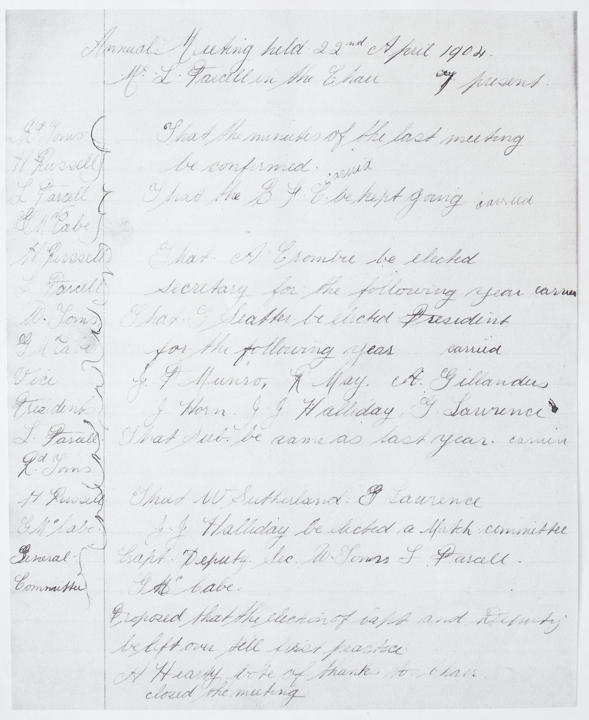 Annual Meeting held 22nd April 1904.
Mr. L Parcell in the Chair 7 present.
Rd Toms That the minutes of the last meeting
H Russell be confirmed. carried
L Parcell That the E F C be kept going carried
G McCabe
H Russell That A Crombie be elected
L Parcell secretary for the following year carried
W. Toms That Seatter be elected President
G McCabe for the following year carried
Vice J F Munro, R May. A. Gillanders
Presidents J Horn. J. J. Halliday, G Lawrence
L. Parcell That Sub. be same as last year. carried
Rd Toms
H Russell That W Sutherland. G Lawrence
G McCabe J. J. Halliday be elected a Match committee
General Capt. Deputy. Sec. W Toms L Parcell.
Committee G Mc Cabe.
Proposed that the election of Capt and Deputy
be left over till first practice
A Hearty vote of thanks to chair
closed the meeting